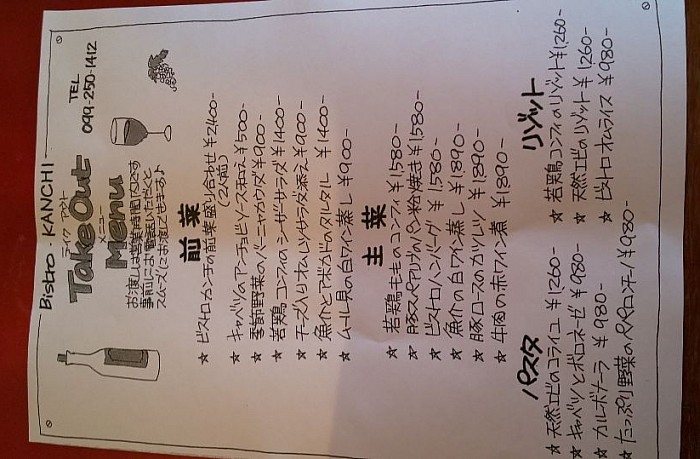 Bistro・KANCHI
テイク アウト
Take Out
メニュー
Menu
TEL
099-250-1412
お渡しは営業時間内です
事前にお電話いただくと
スムーズにお渡しできます♪
前菜
★ ビストロカンチの前菜盛り合わせ ¥2400-
(2人前)
★ キャベツのアンチョビソース和え ¥500-
★ 季節野菜のバーニャカウダ ¥900-
★ 若鶏コンフィのシーザーサラダ ¥1400-
★ チーズ入りオムレツサラダ添え ¥900-
★ 魚介とアボカドのタルタル ¥1400-
★ ムール貝の白ワイン蒸し ¥900-
主菜
★ 若鶏ももものコンフィ ¥1,580-
★ 豚スペアリブのパン粉焼き ¥1,580-
★ ビストロハンバーグ ¥1,580-
★ 魚介の白ワイン蒸し ¥1,890-
★ 豚ロースのカツレツ ¥1,890-
★ 牛肉の赤ワイン煮 ¥1,890-
パスタ
★ 天然エビのコライユ ¥1,260-
★ キャベツとボロネーゼ ¥980-
★ カルボナーラ ¥980-
★ たっぷり野菜のペペロンチーノ ¥980-
リゾット
★ 若鶏コンフィのリゾット ¥1,260-
★ 天然エビのリゾット ¥1260-
★ ビストロオムライス ¥980-